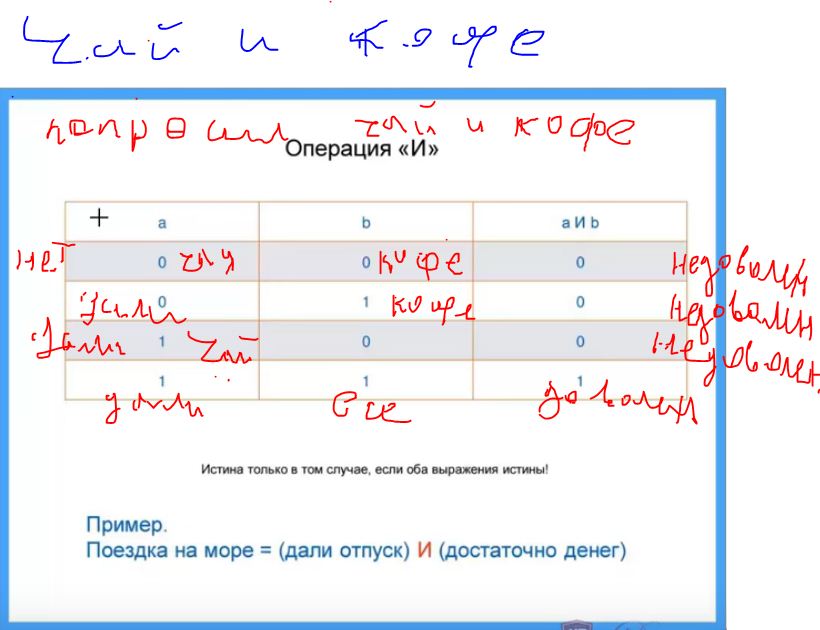 Чай и кофе
попросил чай и кофе
Операция «И»
a b a И b
нет 0 чая 0 кофе 0 недоволен
дали 0 1 кофе 0 недоволен
дали 1 чай 0 0 недоволен
1 1 1
дали все доволен
Истина только в том случае, если оба выражения истины!
Пример.
Поездка на море = (дали отпуск) И (достаточно денег)